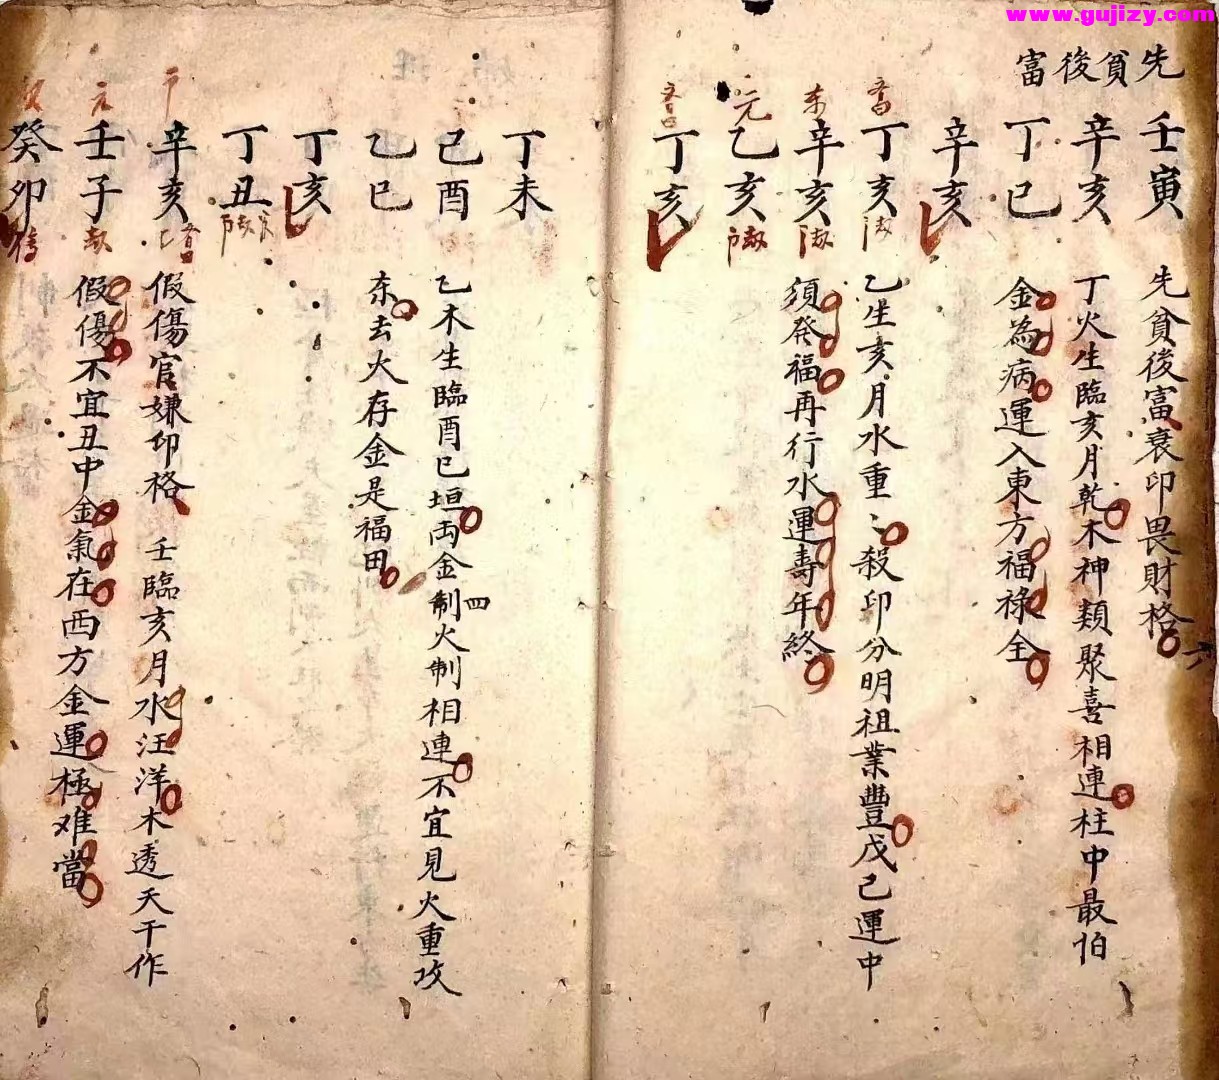 www.gujizy.com
先貧後富
壬寅 先貧後富衰印畏財格
辛亥 丁火生臨亥月乾木神類聚喜相連柱中最怕
丁巳 金為病運入東方福祿全
辛亥
丁亥 乙生亥月水重〻殺印分明祖業豐戊己運中
辛亥 須發福再行水運壽年終
乙亥
丁亥
丁未
己酉 乙木生臨酉巳垣両金制四火制相連不宜見火重攻
乙巳 东去火存金是福田
丁亥
丁丑
辛亥 假傷官嫌印格 壬臨亥月水汪洋木透天干作
壬子 假傷不宜丑中金氣在西方金運極难當
癸卯